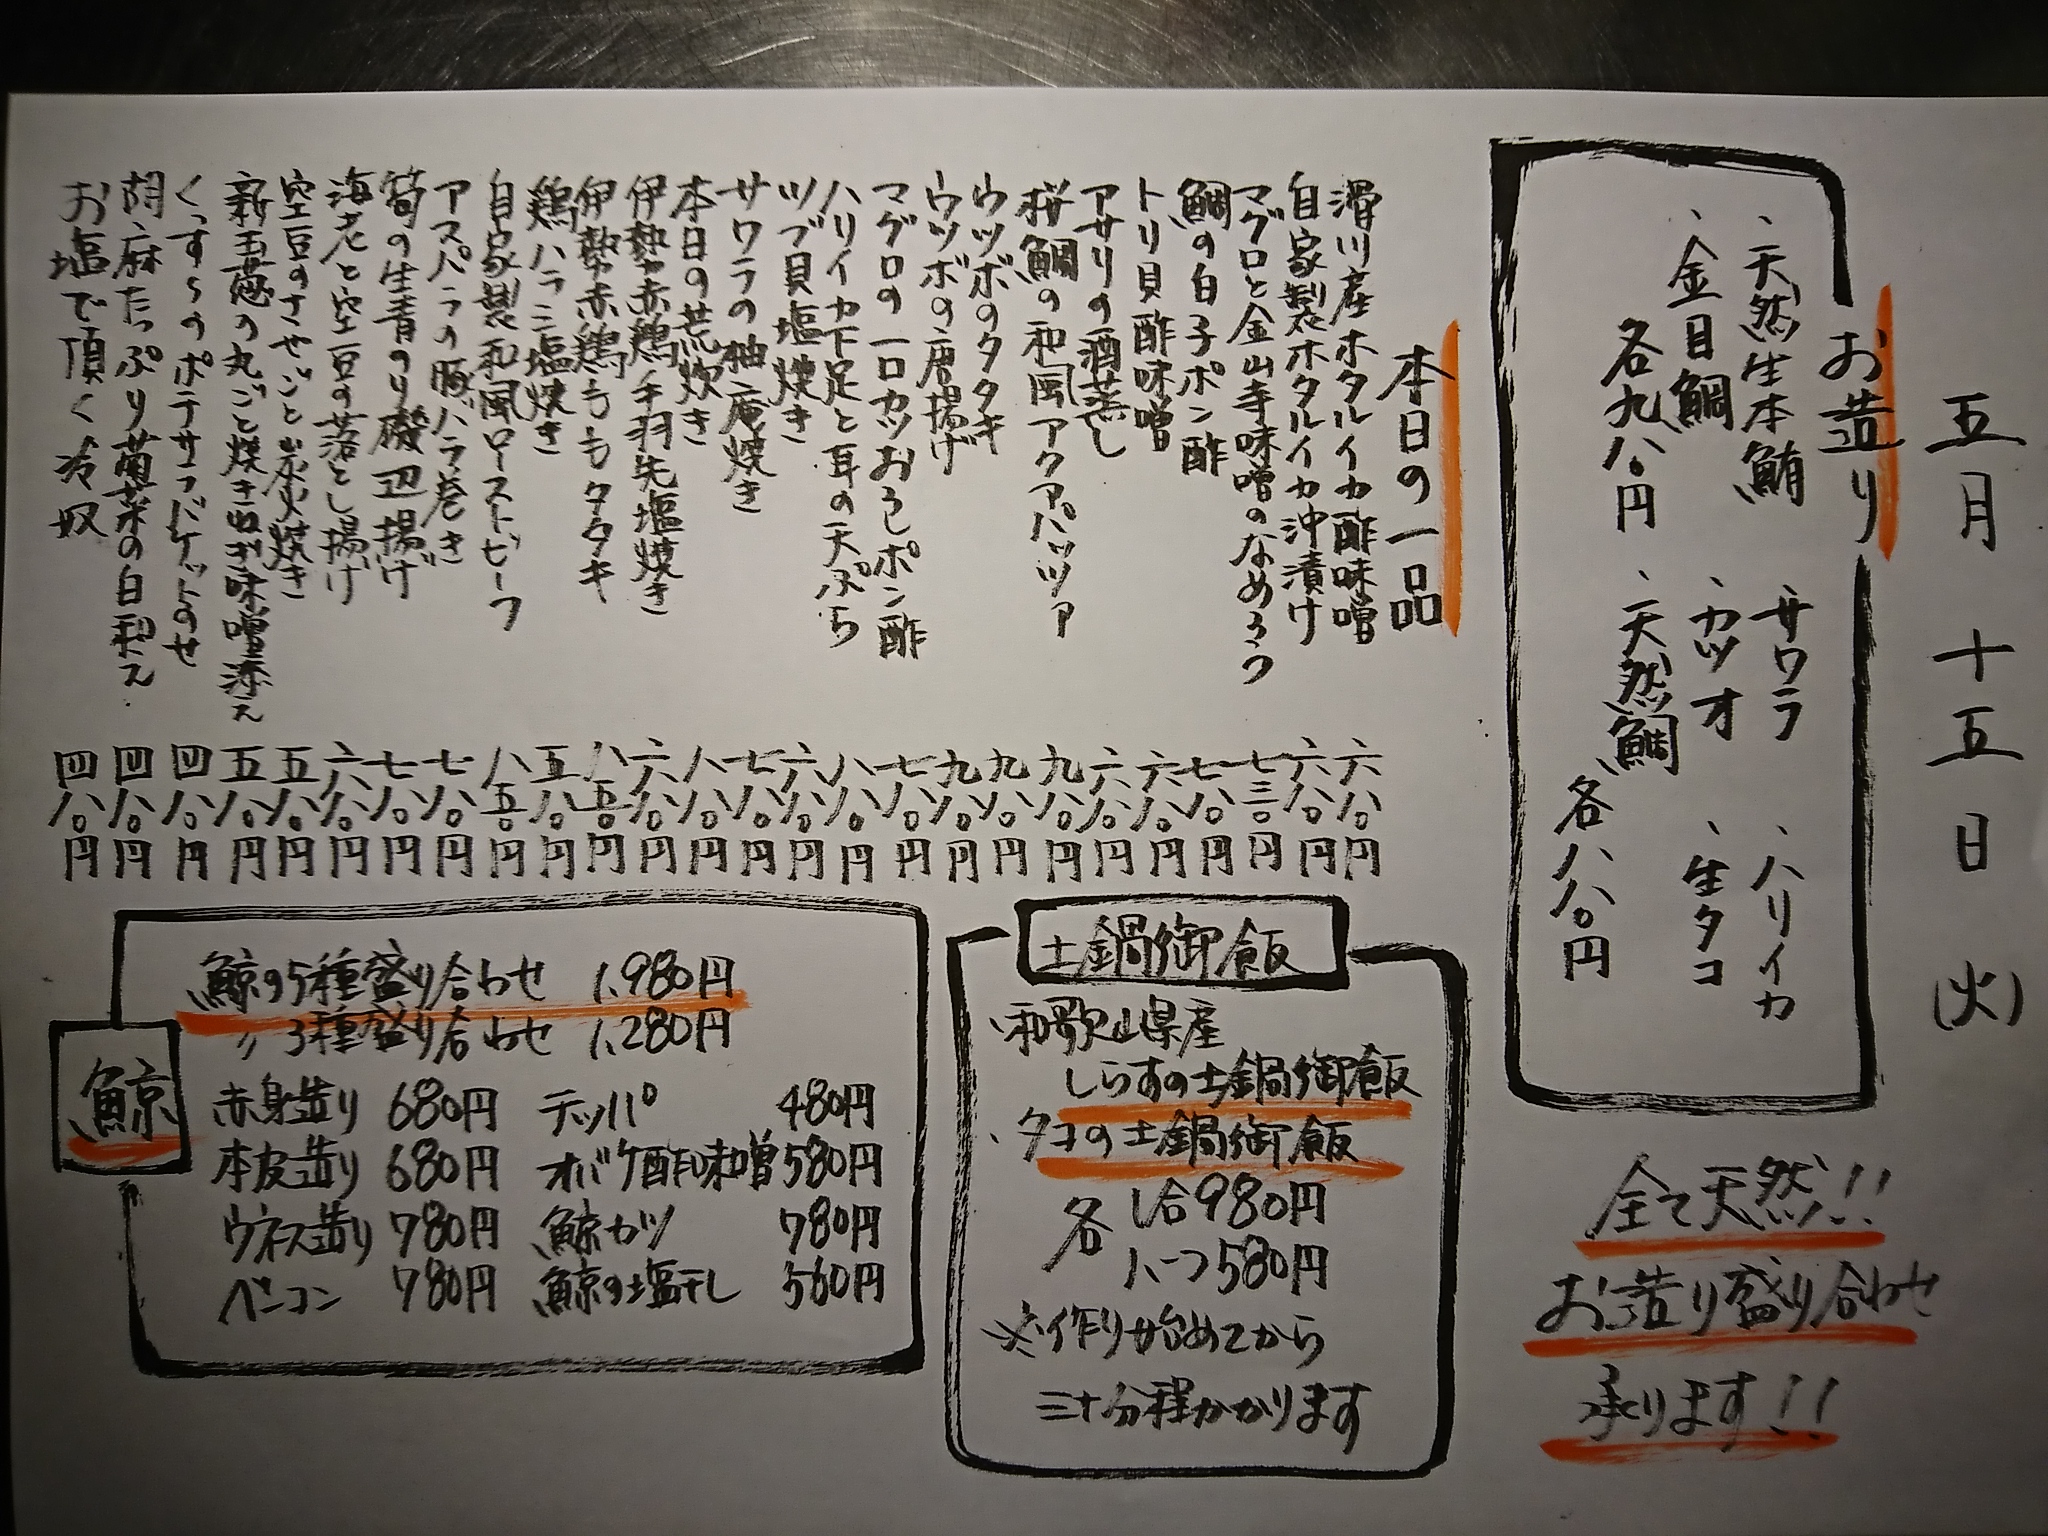 五月十五日(火)
お造り
、天然生本鮪
、金目鯛
各九八〇円
、サワラ
、カツオ
、天然鯛
、ハリイカ
、生タコ
各八八〇円
全て天然!!
お造り盛り合わせ
承ります!!
本日の一品
滑川産ホタルイカ酢味噌 六八〇円
自家製ホタルイカ沖漬け 六八〇円
マグロと金山寺味噌のなめろう 七三〇円
鯛の白子ポン酢 七八〇円
トリ貝酢味噌 六八〇円
アサリの酒蒸し 六八〇円
桜鯛の和風アクアパッツァ 九八〇円
ウツボのタタキ 九八〇円
ウツボの唐揚げ 九八〇円
マグロの一口カツおろしポン酢 七八〇円
ハリイカ下足と耳の天ぷら 八八〇円
ツブ貝塩焼き 六八〇円
サワラの柚庵焼き 七八〇円
本日の荒炊き 八八〇円
伊勢赤鶏手羽先塩焼き 六八〇円
伊勢赤鶏ももタタキ 八五〇円
鶏ハラミ塩焼き 五八〇円
自家製和風ローストビーフ 八五〇円
アスパラの豚バラ巻き 七八〇円
筍の生青のり磯辺揚げ 七八〇円
海老と空豆の落とし揚げ 六八〇円
空豆のさやごと炭火焼き 五八〇円
新玉葱の丸ごと焼きねぎ味噌添え 五八〇円
くっすらのポテサラバケットのせ 四八〇円
胡麻たっぷり菊菜の白和え 四八〇円
お塩で頂く冷奴 四八〇円
土鍋御飯
、和歌山県産
しらすの土鍋御飯
、タコの土鍋御飯
各 1合980円
ハーフ580円
※作り始めてから
三十分程かかります
鯨
鯨の5種盛り合わせ 1,980円
〃 3種盛り合わせ 1,280円
赤身造り 680円 テッパ 480円
本皮造り 680円 オバケ酢味噌 580円
ウネス造り 780円 鯨カツ 780円
ベーコン 780円 鯨の塩干し 560円